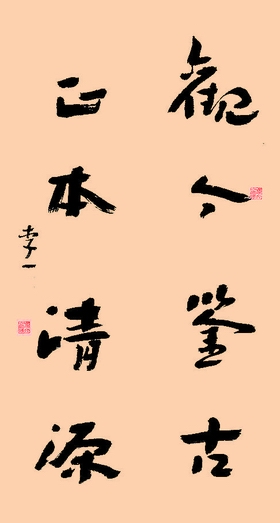 觀今鑒古
正本清源
李一